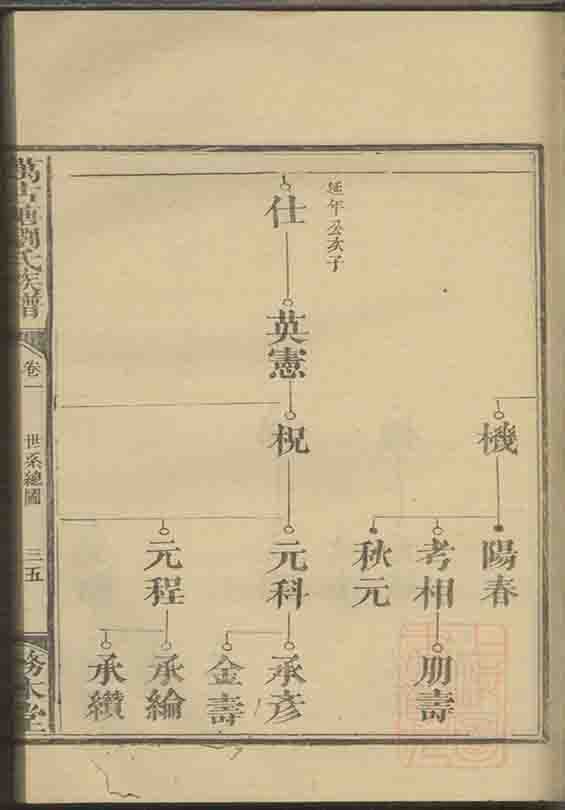 延年公亥子
仕
英憲
機
柷
陽春
考相
秋元
元科
元程
朋壽
承彥
金壽
承綸
承纘
萬古塘劉氏族譜
卷一
世系總圖
三五
務本堂